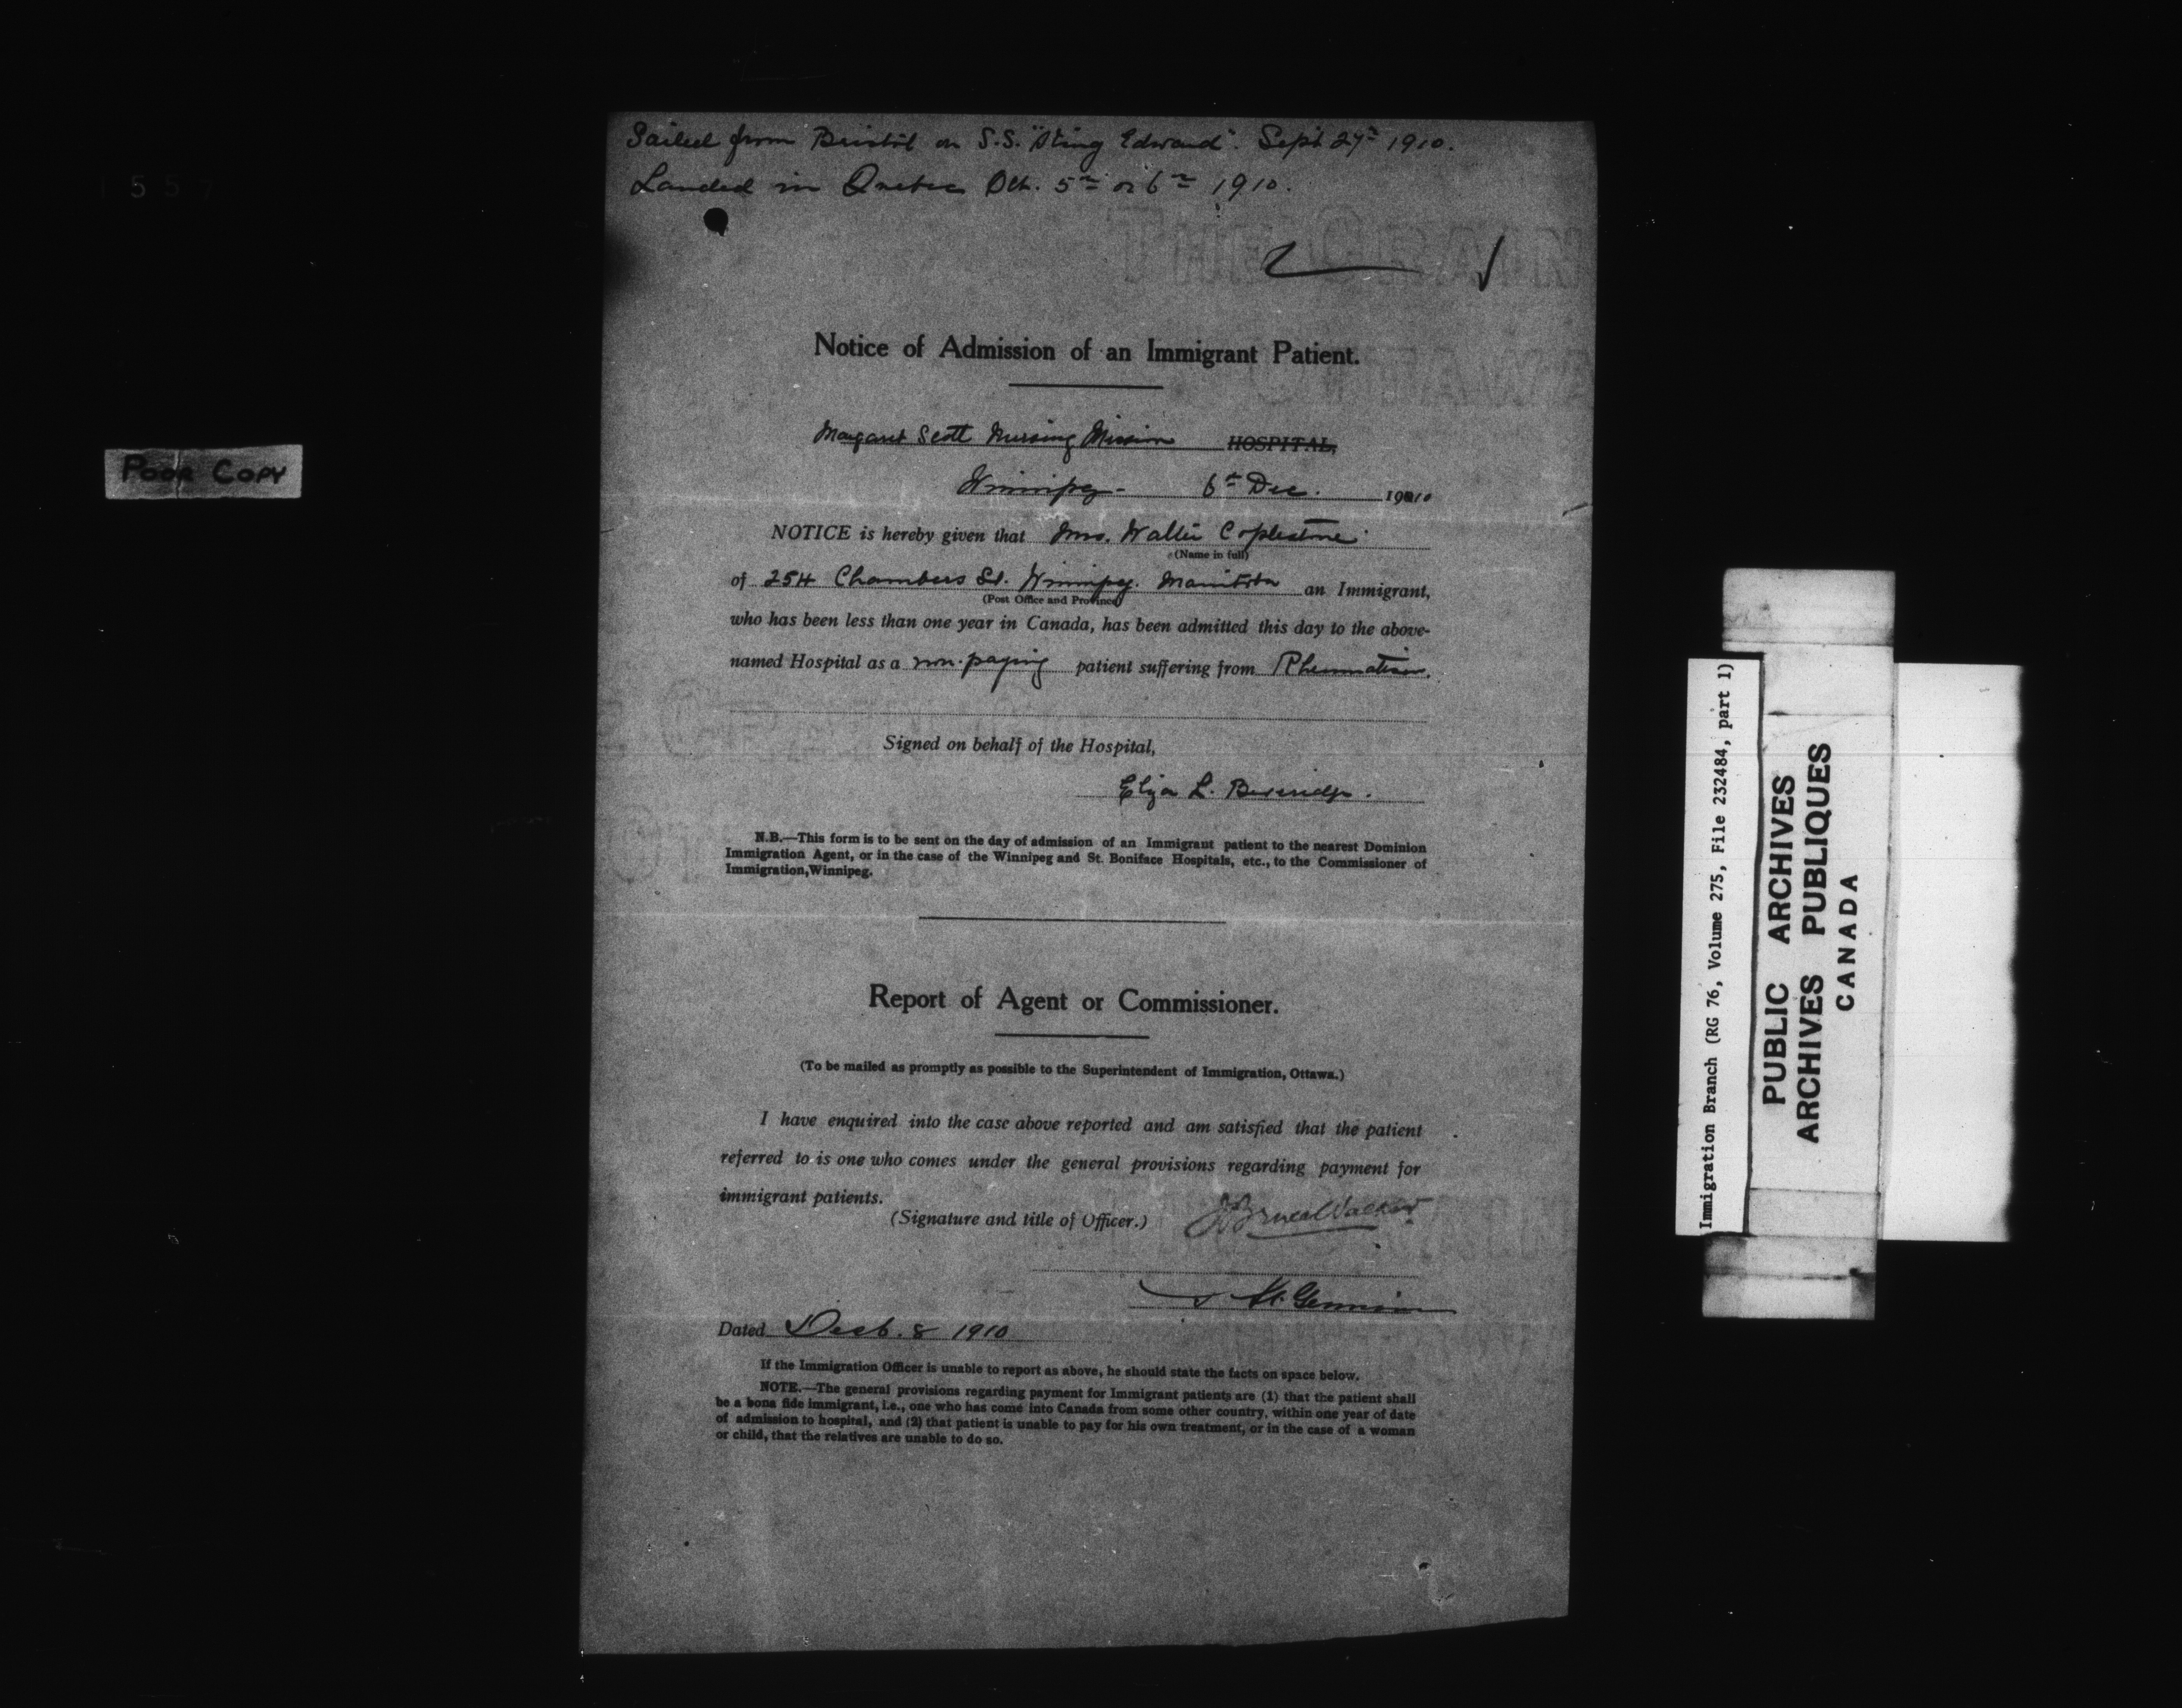 Sailed from Bristol on S.S. "King Edward". Sept 27th 1910.
Landed in Quebec Oct. 5th or 6th 1910.
Notice of Admission of an Immigrant Patient.
Margaret Scott Nursing Mission HOSPITAL,
Winnipeg - 6th Dec. 1910
NOTICE is hereby given that Mrs. Walter Coplestone
(Name in full)
of 254 Chambers St. Winnipeg. Manitoba an Immigrant,
(Post Office and Province)
who has been less than one year in Canada, has been admitted this day to the above-
named Hospital as a non-paying patient suffering from Rheumatism.
Signed on behalf of the Hospital,
Eliza L. Beveridge.
N.B.—This form is to be sent on the day of admission of an Immigrant patient to the nearest Dominion
Immigration Agent, or in the case of the Winnipeg and St. Boniface Hospitals, etc., to the Commissioner of
Immigration, Winnipeg.
Report of Agent or Commissioner.
(To be mailed as promptly as possible to the Superintendent of Immigration, Ottawa.)
I have enquired into the case above reported and am satisfied that the patient
referred to is one who comes under the general provisions regarding payment for
immigrant patients.
(Signature and title of Officer.) J Bruce Walker
Dated Decb. 8 1910
If the Immigration Officer is unable to report as above, he should state the facts on space below.
NOTE.—The general provisions regarding payment for Immigrant patients are (1) that the patient shall
be a bona fide immigrant, i.e., one who has come into Canada from some other country, within one year of date
of admission to hospital, and (2) that patient is unable to pay for his own treatment, or in the case of a woman
or child, that the relatives are unable to do so.
Poor Copy
Immigration Branch (RG 76, Volume 275, File 232484, part 1)
PUBLIC ARCHIVES
ARCHIVES PUBLIQUES
CANADA